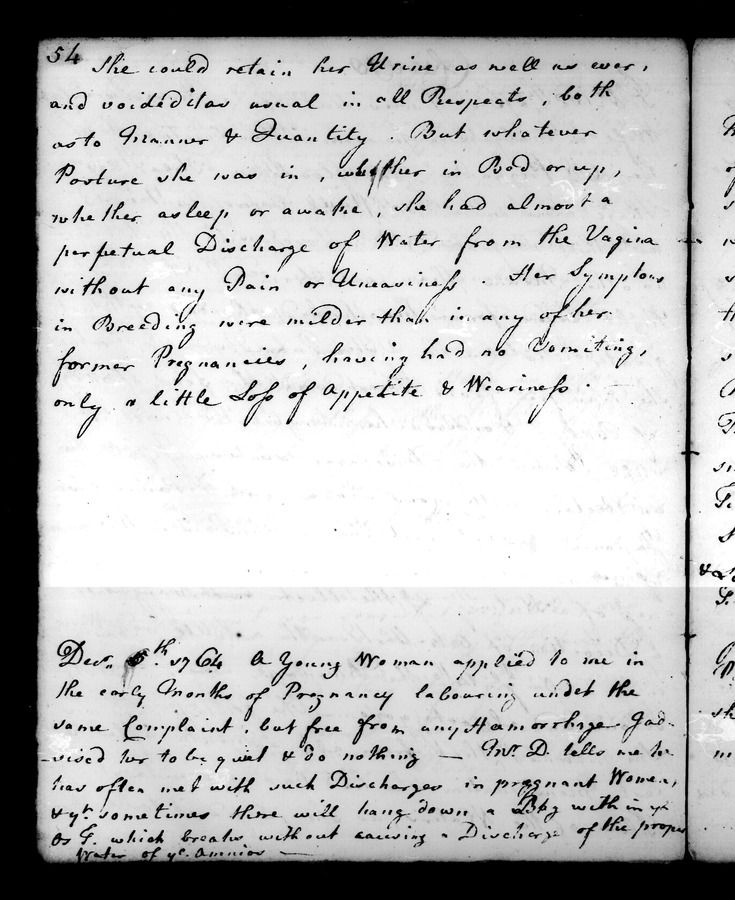 54
She could retain her Urine as well as ever,
and voided it as usual in all Respects, both
as to Manner & Quantity. But whatever
Posture she was in, whether in Bed or up,
whether asleep or awake, she had almost a
perpetual Discharge of Water from the Vagina
without any Pain or Uneasiness. Her Symptoms
in Breeding were milder than in any of her
former Pregnancies, having had no Vomiting,
only a little Loss of Appetite & Weariness.
Decr. 6th 1764 A Young Woman applied to me in
the early Months of Pregnancy labouring under the
same Complaint, but free from any Hæmorrhage I ad-
-vised her to be quiet & do nothing — Mr. D. tells me he
has often met with such Discharges in pregnant Women,
& yt. sometimes there will hang down a Bag within ye
Os T. which breaks without causing a Discharge of the proper
Water of ye. Amnios —